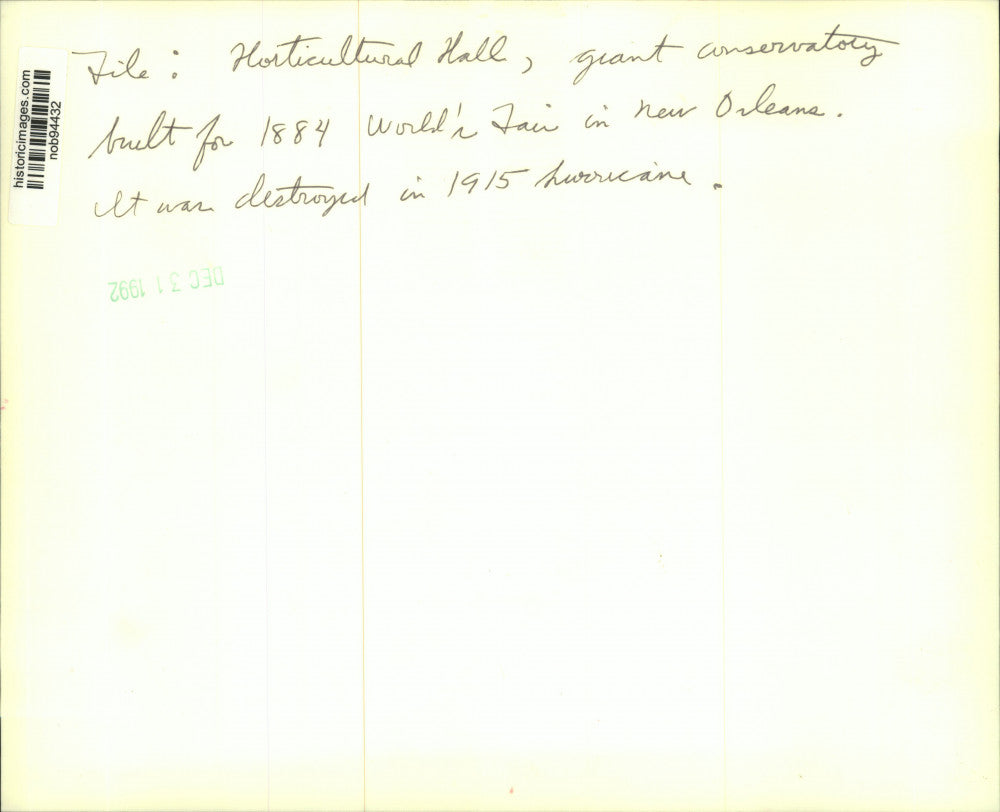 File: Horticultural Hall, giant conservatory
built for 1884 World's Fair in New Orleans.
It was destroyed in 1915 hurricane.
historicimages.com
nob94432
DEC 31 1992